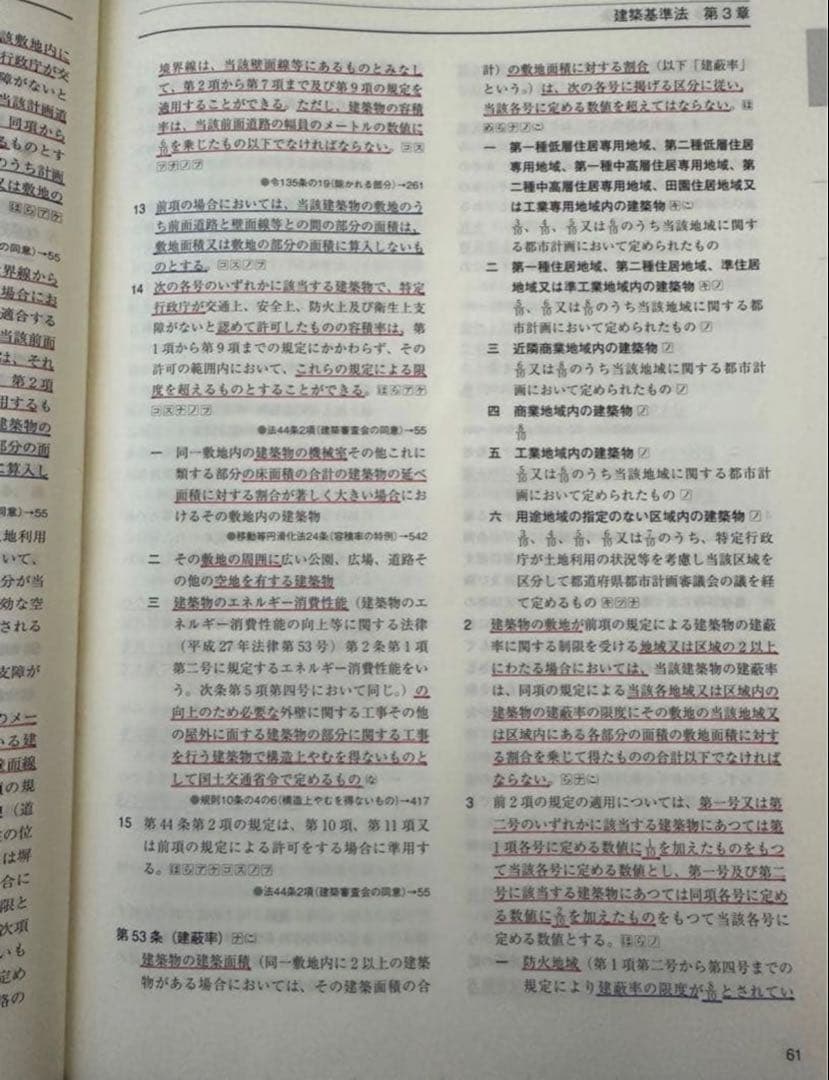 建築基準法 第3章
該敷地内に
行政庁が交
障がないと
当該計画道
同項から
るものとす
のうち計画
又は敷地の
の同意)→55
世界線から
場合にお
適合する
当該前面
は、それ
第2項
用するも
建築物の
部分の面
に算入し
同意)→55
地利用
いて、
分が当
効な空
される
支障が
のメー
いる建
壁面線
の規
(道
の位
は塀
合に
限と
次項
いも
定め
路の
境界線は、当該壁面線等にあるものとみなし
て、第2項から第7項まで及び第9項の規定を
適用することができる。ただし、建築物の容積
率は、当該前面道路の幅員のメートルの数値に
6/10を乗じたもの以下でなければならない。コス
ナノフ
●令135条の19(除かれる部分)→261
13 前項の場合においては、当該建築物の敷地のう
ち前面道路と壁面線等との間の部分の面積は、
敷地面積又は敷地の部分の面積に算入しないも
のとする。コスノフ
14 次の各号のいずれかに該当する建築物で、特定
行政庁が交通上、安全上、防火上及び衛生上支
障がないと認めて許可したものの容積率は、第
1項から第9項までの規定にかかわらず、その
許可の範囲内において、これらの規定による限
度を超えるものとすることができる。はらアケ
コスナノフ
●法44条2項(建築審査会の同意)→55
一 同一敷地内の建築物の機械室その他これに
類する部分の床面積の合計の建築物の延べ
面積に対する割合が著しく大きい場合にお
けるその敷地内の建築物
●移動等円滑化法24条(容積率の特例)→542
二 その敷地の周囲に広い公園、広場、道路そ
の他の空地を有する建築物
三 建築物のエネルギー消費性能(建築物のエ
ネルギー消費性能の向上等に関する法律
(平成27年法律第53号)第2条第1項
第二号に規定するエネルギー消費性能をい
う。次条第5項第四号において同じ。)の
向上のため必要な外壁に関する工事その他
の屋外に面する建築物の部分に関する工事
を行う建築物で構造上やむを得ないものと
して国土交通省令で定めるもの な
●規則10条の4の6(構造上やむを得ないもの)→417
15 第44条第2項の規定は、第10項、第11項又
は前項の規定による許可をする場合に準用す
る。はらアケコスノフ
●法44条2項(建築審査会の同意)→55
第53条(建蔽率)
建築物の建築面積(同一敷地内に2以上の建築
物がある場合においては、その建築面積の合
計)の敷地面積に対する割合(以下「建蔽率」
という。)は、次の各号に掲げる区分に従い、
当該各号に定める数値を超えてはならない。は
一 第一種低層住居専用地域、第二種低層住居
専用地域、第一種中高層住居専用地域、第
二種中高層住居専用地域、田園住居地域又
は工業専用地域内の建築物
3/10、4/10、5/10又は6/10のうち当該地域に関す
る都市計画において定められたもの
二 第一種住居地域、第二種住居地域、準住居
地域又は準工業地域内の建築物 キノ
5/10、6/10又は8/10のうち当該地域に関する都
市計画において定められたもの ノ
三 近隣商業地域内の建築物 ノ
6/10又は8/10のうち当該地域に関する都市計
画において定められたもの ノ
四 商業地域内の建築物 ノ
8/10
五 工業地域内の建築物 ノ
5/10又は6/10のうち当該地域に関する都市計
画において定められたもの ノ
六 用途地域の指定のない区域内の建築物 ノ
3/10、4/10、5/10、6/10又は7/10のうち、特定行政
庁が土地利用の状況等を考慮し当該区域を
区分して都道府県都市計画審議会の議を経
て定めるもの キツナ
2 建築物の敷地が前項の規定による建築物の建蔽
率に関する制限を受ける地域又は区域の2以上
にわたる場合においては、当該建築物の建蔽率
は、同項の規定による当該各地域又は区域内の
建築物の建蔽率の限度にその敷地の当該地域又
は区域内にある各部分の面積の敷地面積に対す
る割合を乗じて得たものの合計以下でなければ
ならない。
3 前2項の規定の適用については、第一号又は第
二号のいずれかに該当する建築物にあつては第
1項各号に定める数値に1/10を加えたものをもつ
て当該各号に定める数値とし、第一号及び第二
号に該当する建築物にあつては同項各号に定め
る数値に2/10を加えたものをもつて当該各号に
定める数値とする。はらノ
一 防火地域(第1項第二号から第四号までの
規定により建蔽率の限度が8/10とされてい
61